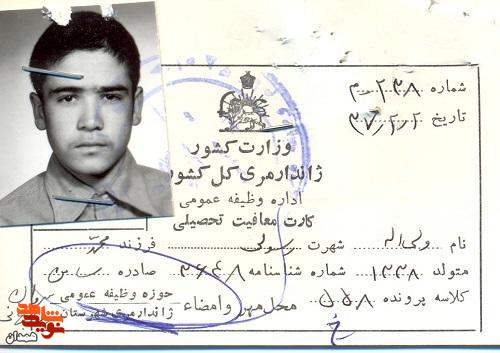 شماره ۲۳۸م
تاریخ ۳۷/۲/۲
وزارت کشور
ژاندارمری کل کشور
اداره وظیفه عمومی
کارت معافیت تحصیلی
نام ولی اله شهرت رسولی فرزند محمد
متولد ۱۳۳۸ شماره شناسنامه ۲۶۴۸ صادره
کلاسه پرونده محل مهر و امضاء حوزه وظیفه عمومی
ژاندارمری شهرستان
نوید شاهد
همدان